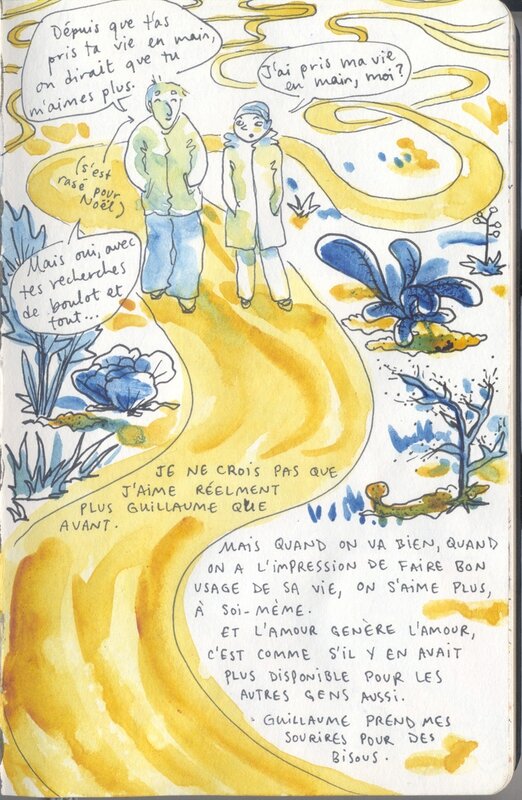 Dépuis que t'as
pris ta vie en main,
on dirait que tu
m'aimes plus.
J'ai pris ma vie
en main, moi?
(s'est
rasé pour
Noël)
Mais oui, avec
tes recherches
de boulot et
tout...
JE NE CROIS PAS QUE
J'AIME RÉELMENT
PLUS GUILLAUME QUE
AVANT.
MAIS QUAND ON VA BIEN, QUAND
ON A L'IMPRESSION DE FAIRE BON
USAGE DE SA VIE, ON S'AIME PLUS,
À SOI-MÊME.
ET L'AMOUR GENÈRE L'AMOUR,
C'EST COMME S'IL Y EN AVAIT
PLUS DISPONIBLE POUR LES
AUTRES GENS AUSSI.
GUILLAUME PREND MES
SOURIRES POUR DES
BISOUS.